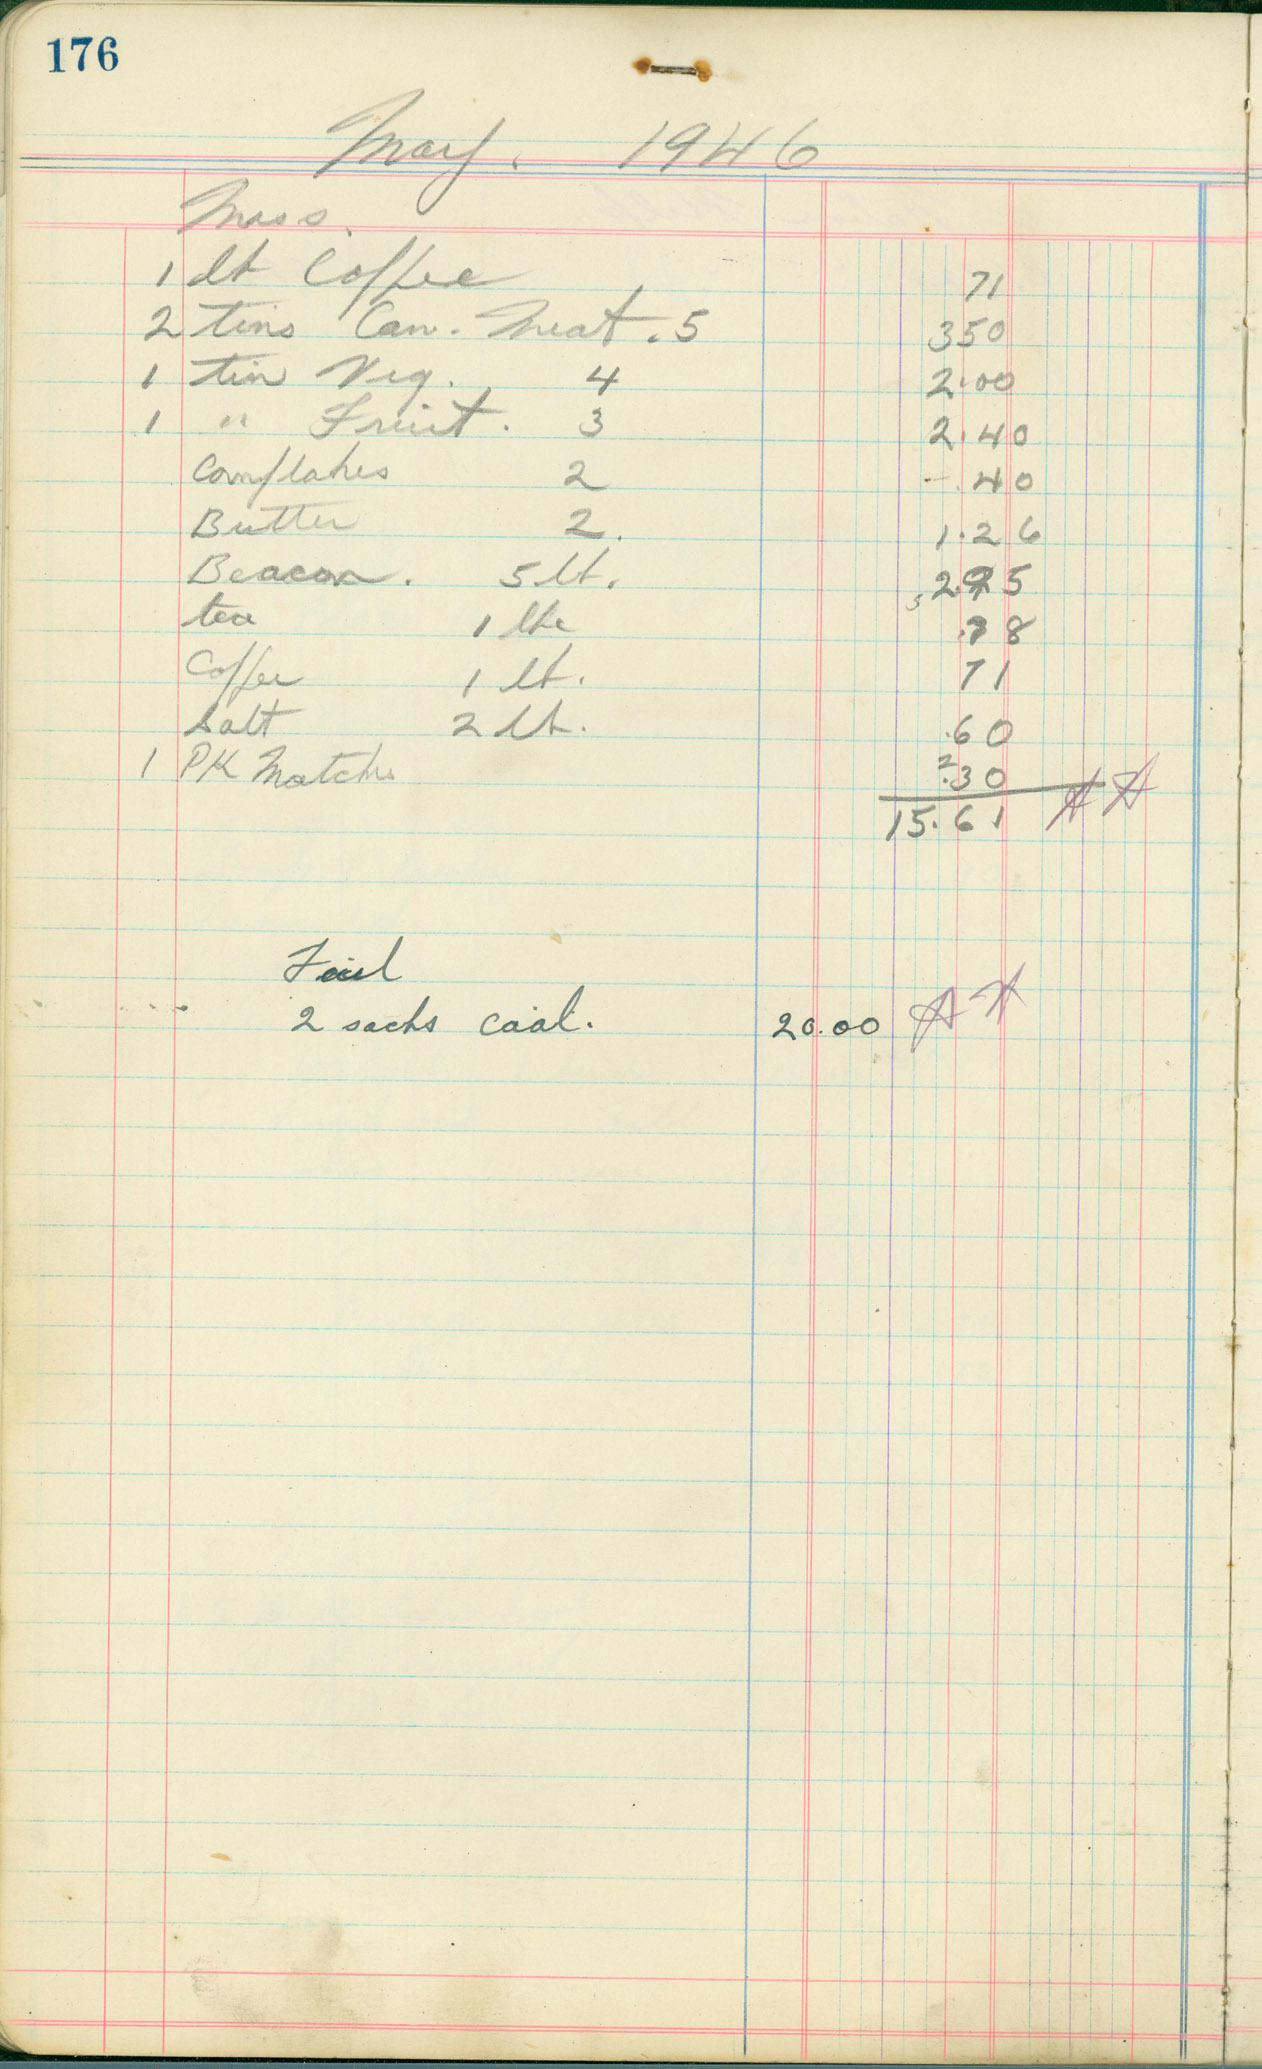 176
May. 1946
Mess.
1 lb Coffee 71
2 tins Can. Meat. 5 350
1 tin Veg. 4 2.00
1 " Fruit. 3 2.40
Cornflakes 2 -.40
Butter 2. 1.26
Beacon. 5 lb. 2.95
tea 1 lbe .78
Coffee 1 lb. 71
Salt 2 lb. .60
1 PK Matches .30
15.61
Fuel
2 sacks coal. 20.00